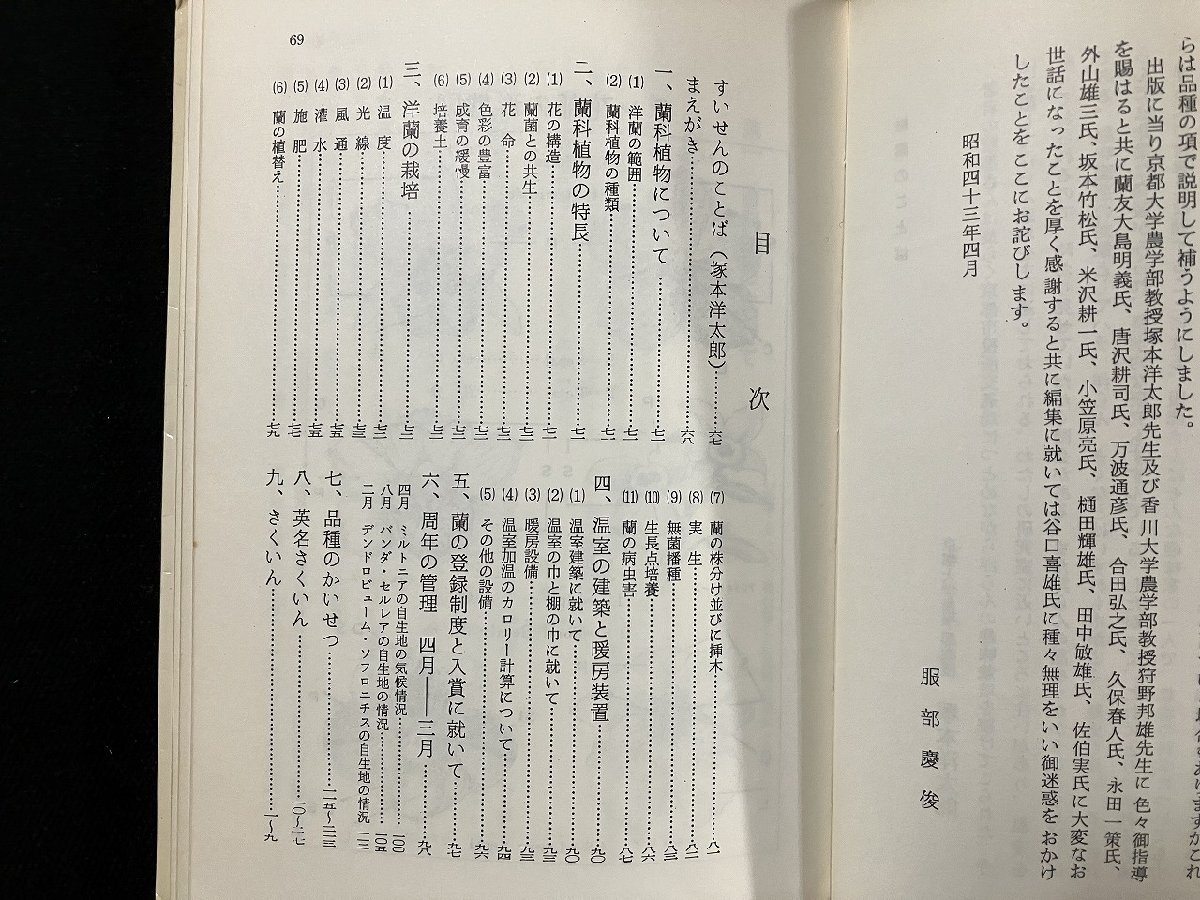 らは品種の項で説明して補うようにしました。
出版に当り京都大学農学部教授塚本洋太郎先生及び香川大学農学部教授狩野邦雄先生に色々御指導
を賜はると共に蘭友大島明義氏、唐沢耕司氏、万波通彦氏、合田弘之氏、久保春人氏、永田一策氏、
外山雄三氏、坂本竹松氏、米沢耕一氏、小笠原亮氏、樋田輝雄氏、田中敏雄氏、佐伯実氏に大変なお
世話になったことを厚く感謝すると共に編集に就いては谷口喜雄氏に種々無理をいい御迷惑をおかけ
したことをここにお詫びします。
昭和四十三年四月
服部慶俊
目次
すいせんのことば(塚本洋太郎)……六七
まえがき……六八
一、蘭科植物について……七一
(1) 洋蘭の範囲……七一
(2) 蘭科植物の種類……七一
二、蘭科植物の特長……七一
(1) 花の構造……七一
(2) 蘭菌との共生……七二
(3) 花命……七二
(4) 色彩の豊富……七二
(5) 成育の緩慢……七二
(6) 培養土……七三
三、洋蘭の栽培……七三
(1) 温度……七三
(2) 光線……七三
(3) 風通……七五
(4) 潅水……七五
(5) 施肥……七七
(6) 蘭の植替え……七九
(7) 蘭の株分け並びに挿木……八一
(8) 実生……八二
(9) 無菌播種……八三
(10) 生長点培養……八六
(11) 蘭の病虫害……八七
四、温室の建築と暖房装置……九〇
(1) 温室建築に就いて……九〇
(2) 温室の巾と棚の巾に就いて……九三
(3) 暖房設備……九三
(4) 温室加温のカロリー計算について……九四
(5) その他の設備……九六
五、蘭の登録制度と入賞に就いて……九七
六、周年の管理 四月――三月……九八
四月 ミルトニアの自生地の気候情況……一〇〇
八月 バンダ・セルレアの自生地の情況……一〇五
二月 デンドロビューム・ソフロニチスの自生地の情況 一一三
七、品種のかいせつ……
八、英名さくいん……
九、さくいん……一〜九
69